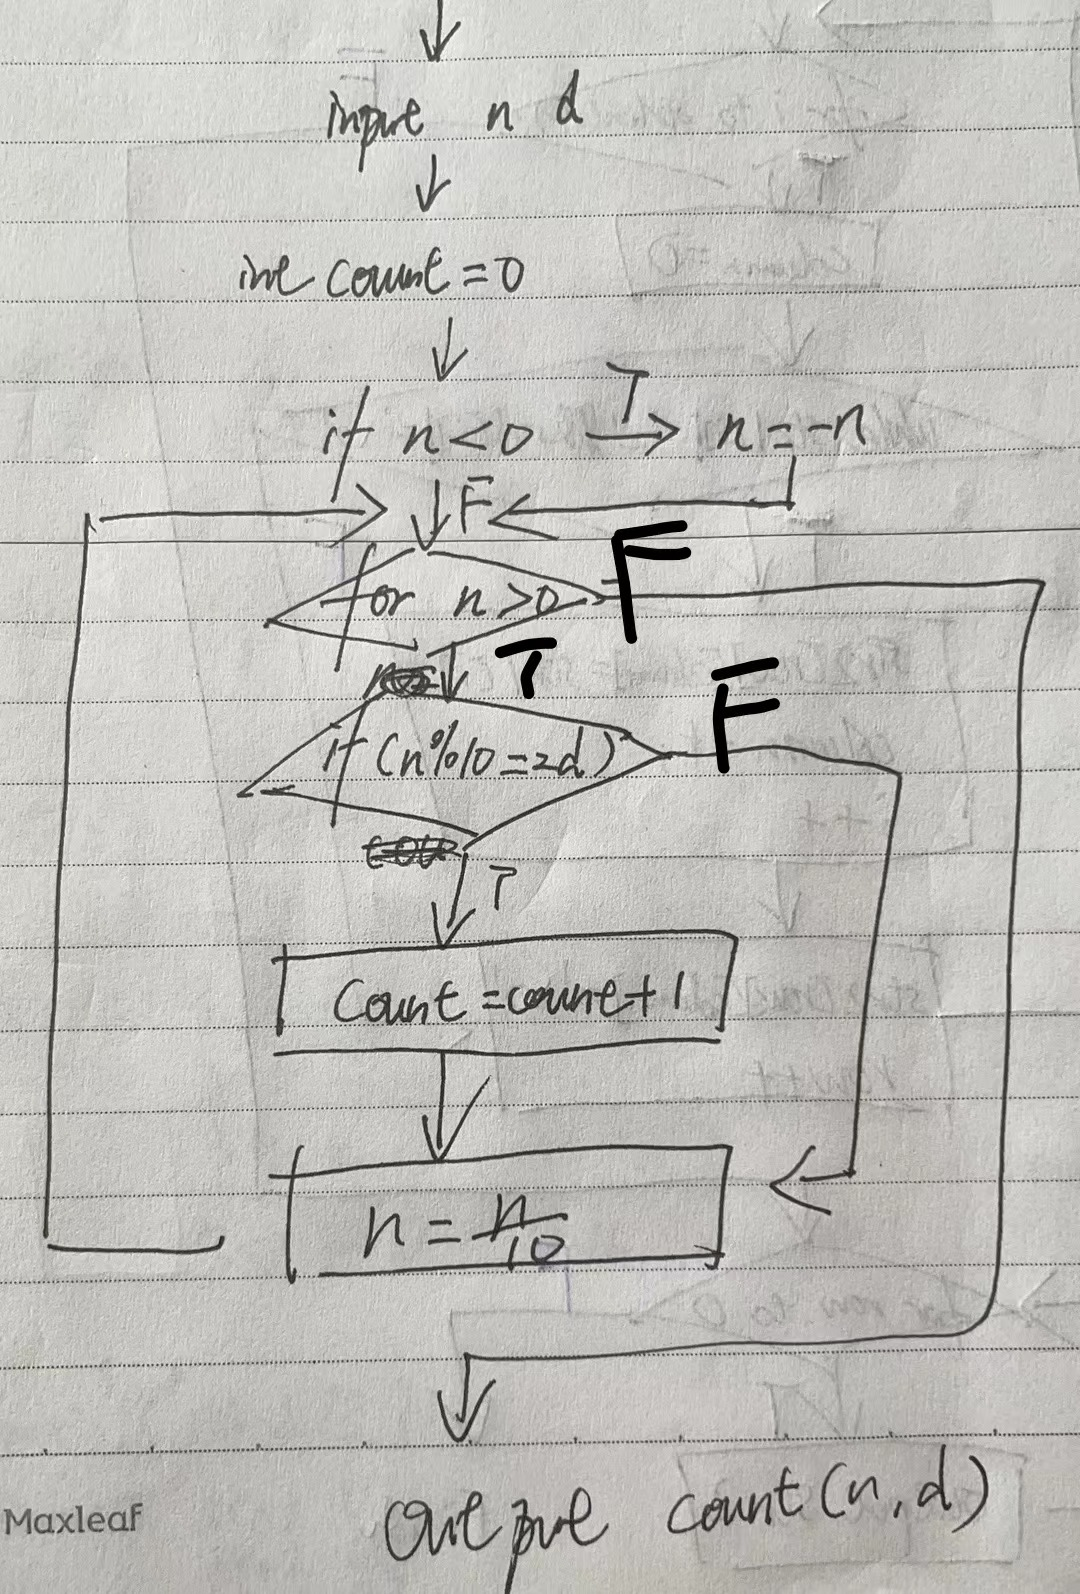 input n d
int count = 0
if n < 0 T n = -n
F
for n > 0 F
T
if (n%10 == d) F
T
Count = count + 1
n = n/10
Maxleaf
output count(n, d)